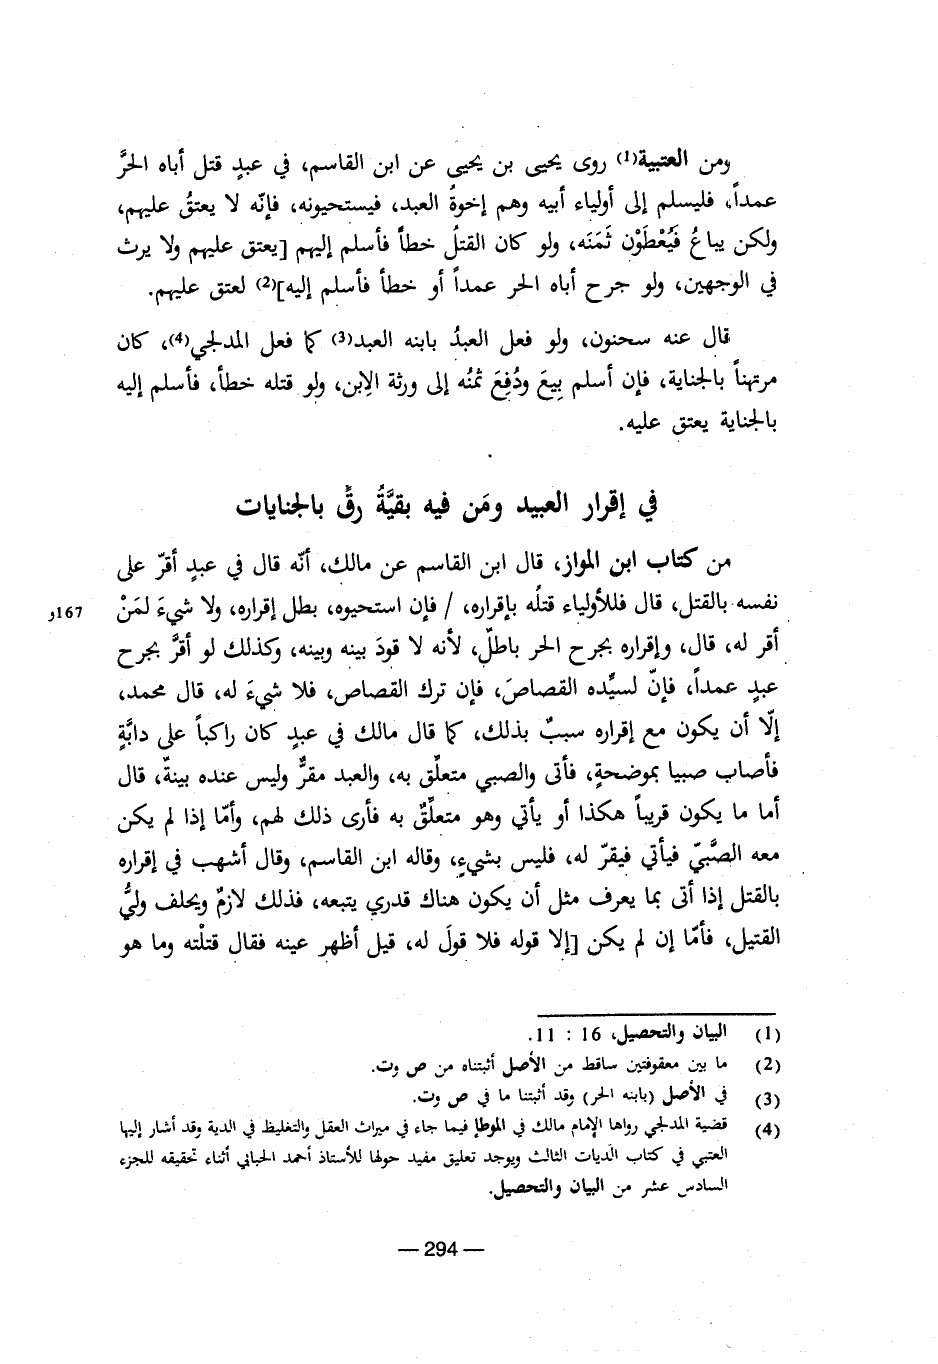 ومن العتبية(1) روى يحيى بن يحيى عن ابن القاسم، في عبدٍ قتل أباه الحرَّ
عمداً، فليسلم إلى أولياء أبيه وهم إخوةُ العبد، فيستحيونه، فإنّه لا يعتقُ عليهم،
ولكن يباعُ فَيُعْطَوْن ثَمَنَه، ولو كان القتلُ خطأً فأسلم إليهم [يعتق عليهم ولا يرث
في الوجهين، ولو جرح أباه الحر عمداً أو خطأ فأسلم إليه](2) لعتق عليهم.
قال عنه سحنون، ولو فعل العبدُ بابنه العبد(3) كما فعل المدلجي(4)، كان
مرتهناً بالجناية، فإن أسلم بِيعَ ودُفِعَ ثمنُه إلى ورثة الإبن، ولو قتله خطأ، فأسلم إليه
بالجناية يعتق عليه.
في إقرار العبيد ومَن فيه بقيَّةُ رقٍّ بالجنايات
من كتاب ابن المواز، قال ابن القاسم عن مالك، أنّه قال في عبدٍ أقرّ على
نفسه بالقتل، قال فللأولياء قتلُه بإقراره، / فإن استحيوه، بطل إقراره، ولا شيءَ لمَنْ
167و
أقر له، قال، وإقراره بجرح الحر باطلّ، لأنه لا قودَ بينه وبينه، وكذلك لو أقرَّ بجرح
عبدٍ عمداً، فإنّ لسيِّده القصاصَ، فإن ترك القصاص، فلا شيءَ له، قال محمد،
إلّا أن يكون مع إقراره سببٌ بذلك، كما قال مالك في عبدٍ كان راكباً على دابَّةٍ
فأصاب صبيا بموضحةٍ، فأتى والصبي متعلِّق به، والعبد مقرٌّ وليس عنده بينةٌ، قال
أما ما يكون قريباً هكذا أو يأتي وهو متعلِّقٌ به فأرى ذلك لهم، وأمّا إذا لم يكن
معه الصَّبيّ فيأتي فيقرّ له، فليس بشيءٍ، وقاله ابن القاسم، وقال أشهب في إقراره
بالقتل إذا أتى بما يعرف مثل أن يكون هناك قدري يتبعه، فذلك لازمٌ ويحلف وليُّ
القتيل، فأمّا إن لم يكن [إلا قوله فلا قولَ له، قيل أظهر عينه فقال قتلْته وما هو
(1) البيان والتحصيل، 16 : 11.
(2) ما بين معقوفتين ساقط من الأصل أثبتناه من ص وت.
(3) في الأصل (بابنه الحر) وقد أثبتنا ما في ص وت.
(4) قضية المدلجي رواها الإمام مالك في الموطإ فيما جاء في ميراث العقل والتغليظ في الدية وقد أشار إليها
العتبي في كتاب الديات الثالث ويوجد تعليق مفيد حولها للأستاذ أحمد الحبابي أثناء تحقيقه للجزء
السادس عشر من البيان والتحصيل.
— 294 —